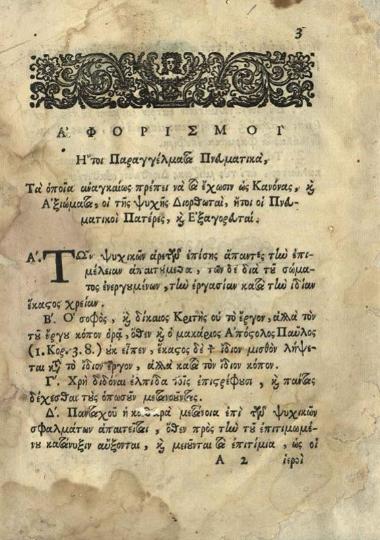 3
Α'ΦΟΡΙΣΜΟΙ
Η'τοι Παραγγέλματα Πνευματικὰ,
Τὰ ὁποῖα ἀναγκαίως πρέπει νὰ τὰ ἔχωσιν ὡς Κανόνας, καὶ
Α'ξιώματα, οἱ τῆς ψυχῆς Διορθωταὶ, ἤτοι οἱ Πνευ-
ματικοὶ Πατέρες, καὶ Ε'ξαγορευταί.
Α'. ΤΩν ψυχικῶν ἀρετῶν ἐπίσης ἅπαντες τὴν ἐπι-
μέλειαν ἀπαιτούμεθα, τῶν δὲ διὰ τοῦ σώμα-
τος ἐνεργουμένων, τὴν ἐργασίαν κατὰ τὴν ἰδίαν
ἕκαστος χρείαν.
Β'. Ο' σοφὸς, καὶ δίκαιος Κριτὴς οὐ τὸ ἔργον, ἀλλὰ τὸν
τοῦ ἔργου κόπον ὁρᾷ, ὅθεν καὶ ὁ μακάριος Α'πόστολος Παῦλος
(1. Κορ. 3. 8.) οὐκ εἶπεν, ἕκαστος δὲ τὸν ἴδιον μισθὸν λήψε-
ται κατὰ τὸ ἴδιον ἔργον, ἀλλὰ κατὰ τὸν ἴδιον κόπον.
Γ'. Χρὴ διδόναι ἐλπίδα τοῖς ἐπιστρέφουσι, καὶ πάντας
δέχεσθαι τοὺς ὁπωσοῦν μετανοοῦντας.
Δ'. Πανταχοῦ ἡ καθαρὰ μετάνοια ἐπὶ τῶν ψυχικῶν
σφαλμάτων ἀπαιτεῖται, ὅθεν πρὸς τὴν τοῦ ἐπιτιμωμέ-
νου κατάνυξιν αὔξονται, καὶ μειοῦνται τὰ ἐπιτίμια, ὡς οἱ
Α 2 ἱεροὶ